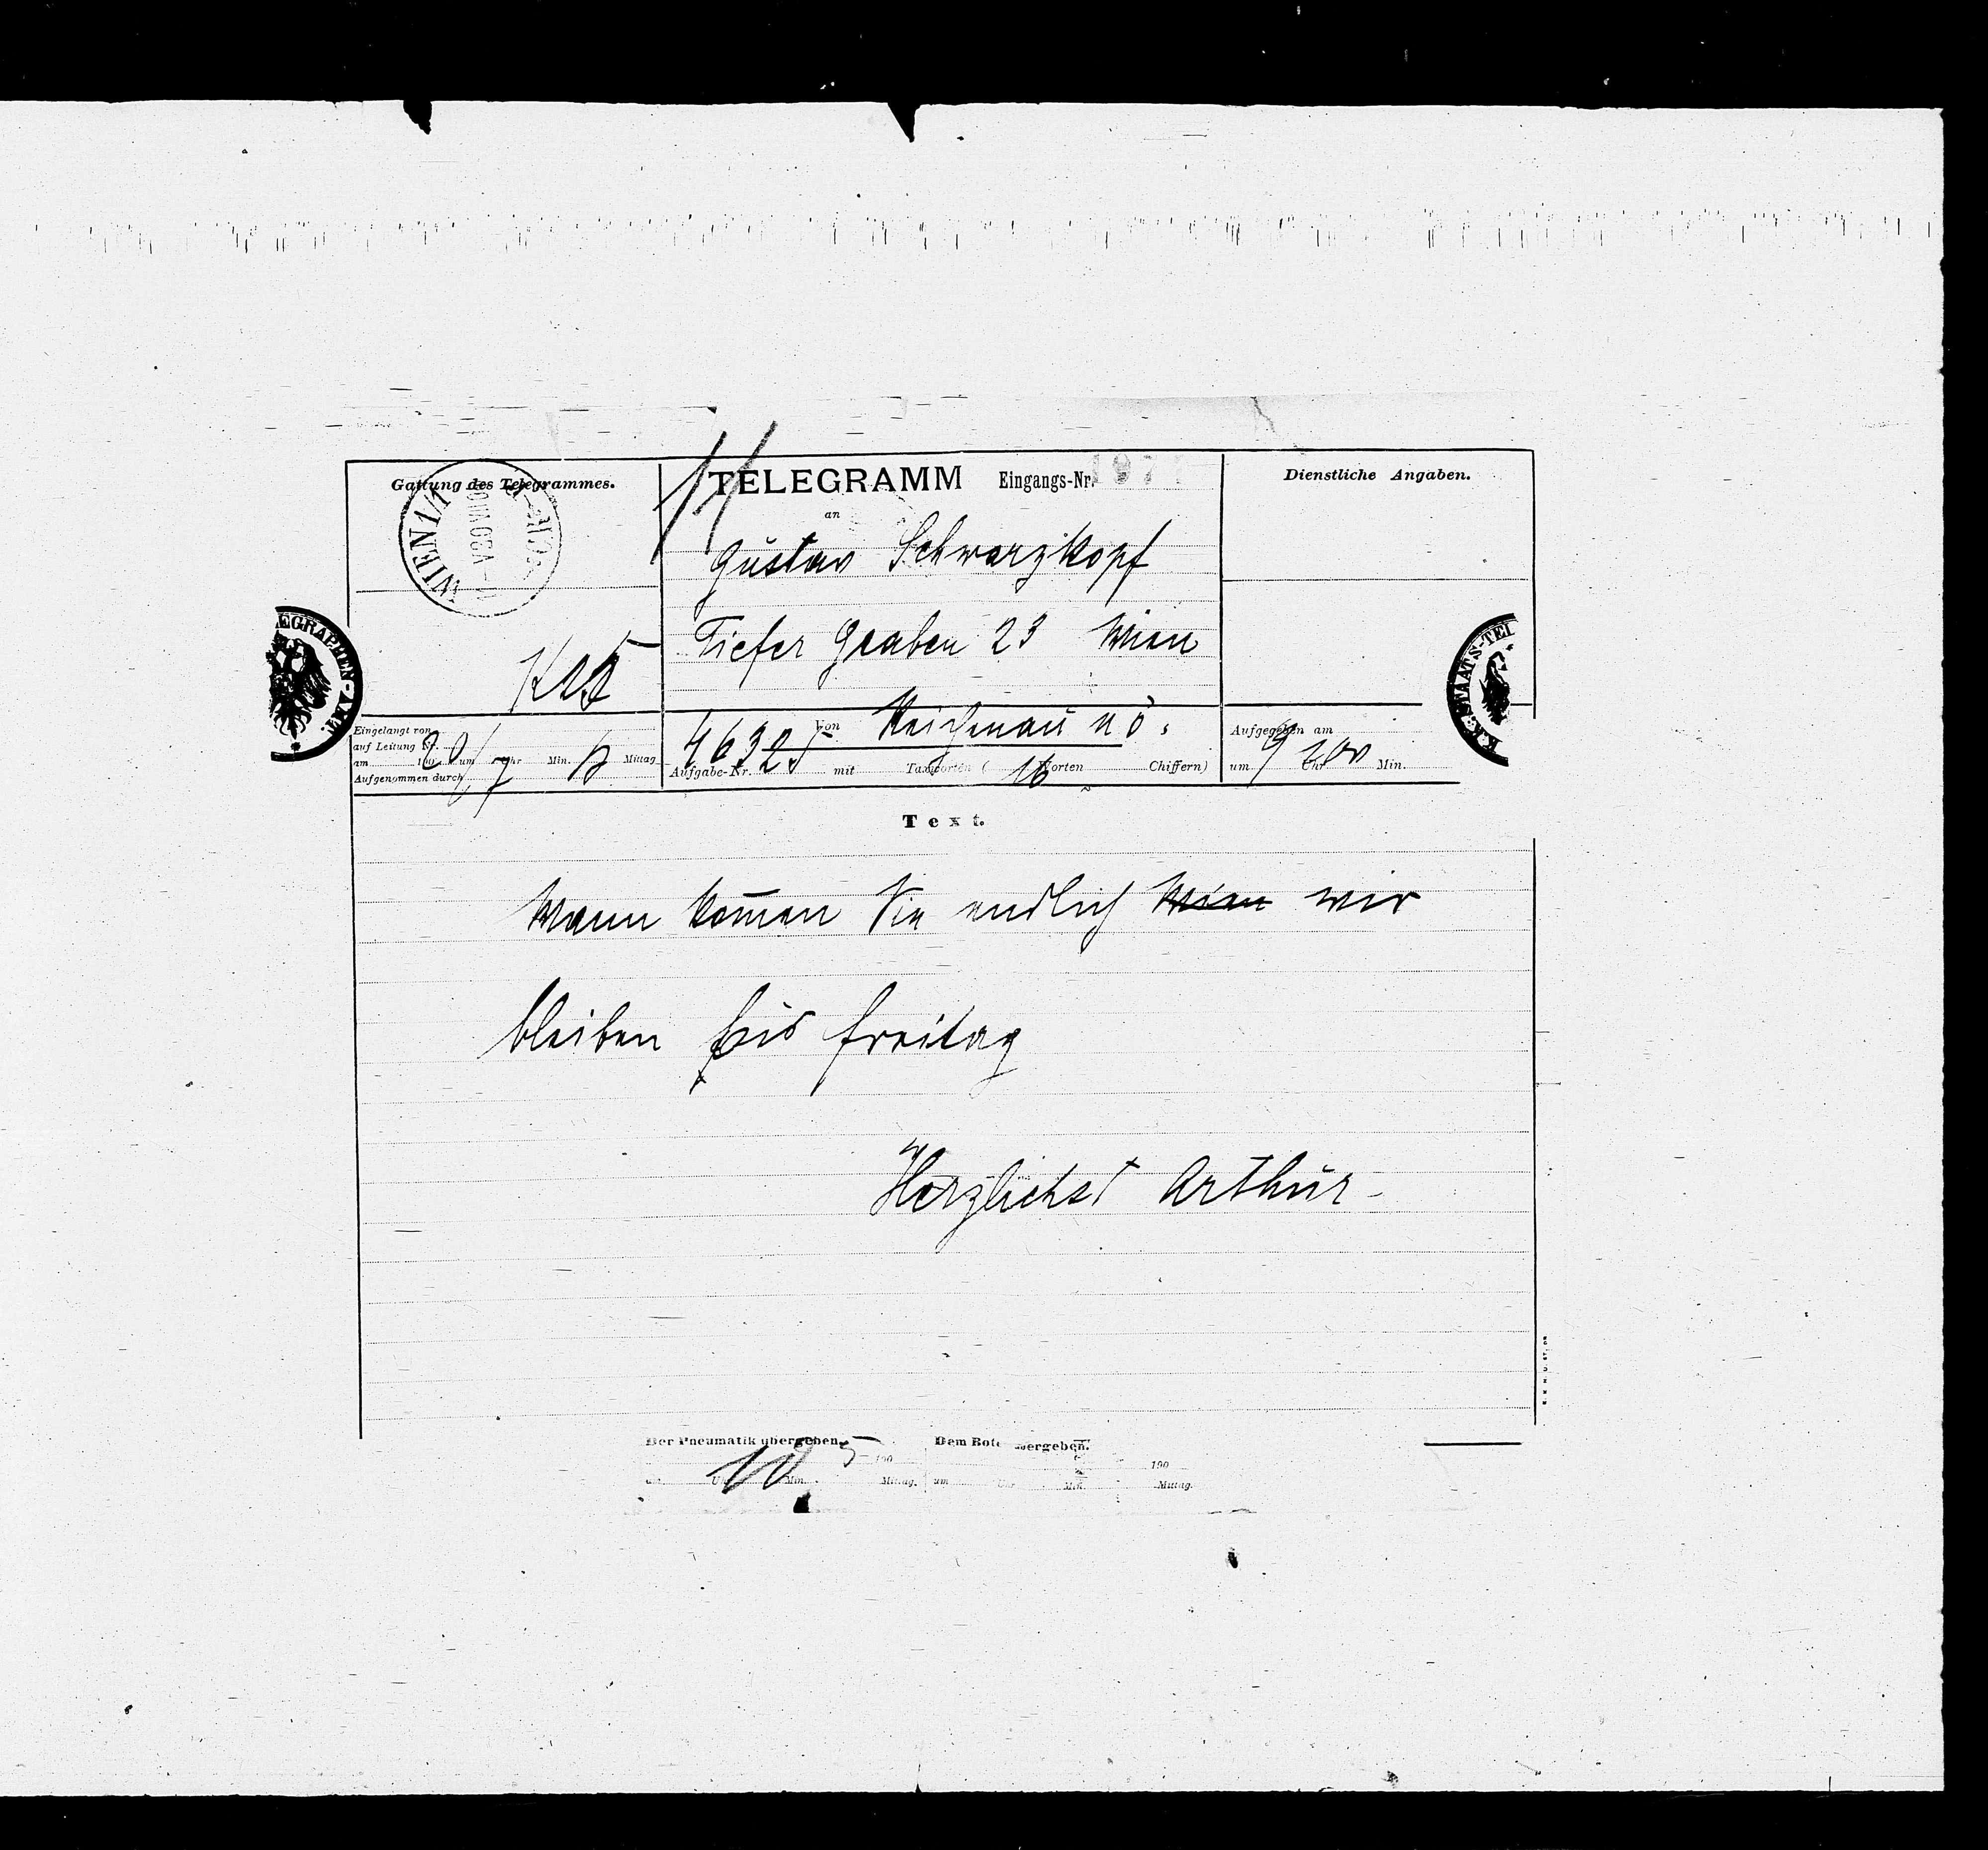 Gattung des Telegrammes.
TELEGRAMM Eingangs-Nr.
Dienstliche Angaben.
an
WIEN 1/1
Gustav Schwarzkopf
Tiefer Graben 23 Wien
EGRAPHEN-AMT.
K.K. STAATS-TEL
Eingelangt von
auf Leitung Nr.
am 190 um Uhr Min. Mittag
Aufgenommen durch
Von Reichenau nö.
Aufgabe-Nr. mit Taxworten ( 16 Worten Chiffern)
Aufgegeben am
um 9 Uhr Min.
Text.
Wann kom̅en Sie endlich Wien wir
bleiben bis Freitag
Herzlichst Arthur
Der Pneumatik übergeben.
190
um Uhr Min. Mittag.
Dem Boten übergeben.
190
um Uhr Min. Mittag.